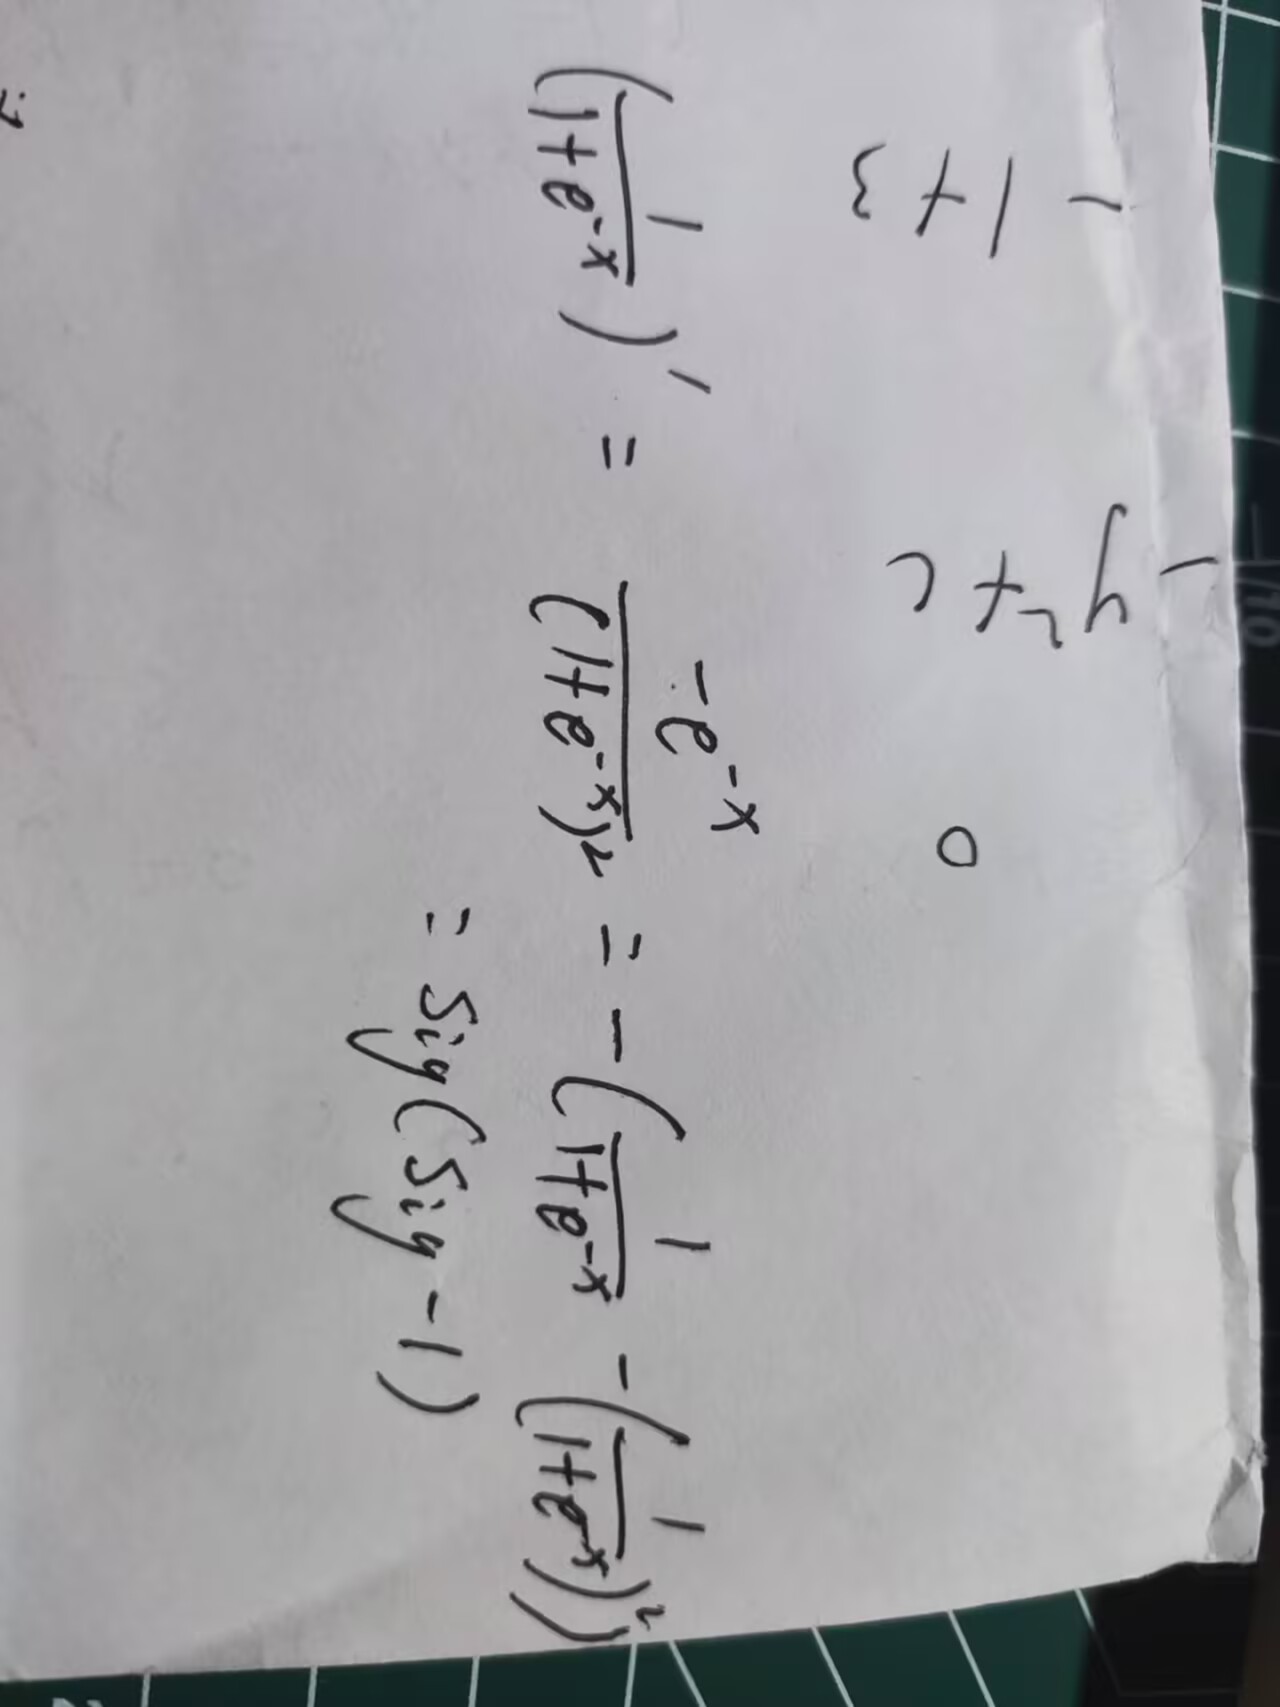 - 1 + 3
- y² + c 0
(1/(1+e^-x))' = -e^-x/(1+e^-x)² = -(1/(1+e^-x) - (1/(1+e^-x))²)
= Sig(Sig-1)